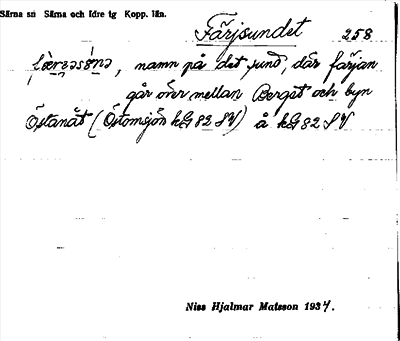 Särna sn Särna och Idre tg Kopp. län.
Färjsundet 258
, namn på det sund, där färjan
går över mellan Berget och byn
Östanåt (Östomsjön kG 82 SV) å kG 82 SV
Niss Hjalmar Matsson 1934.